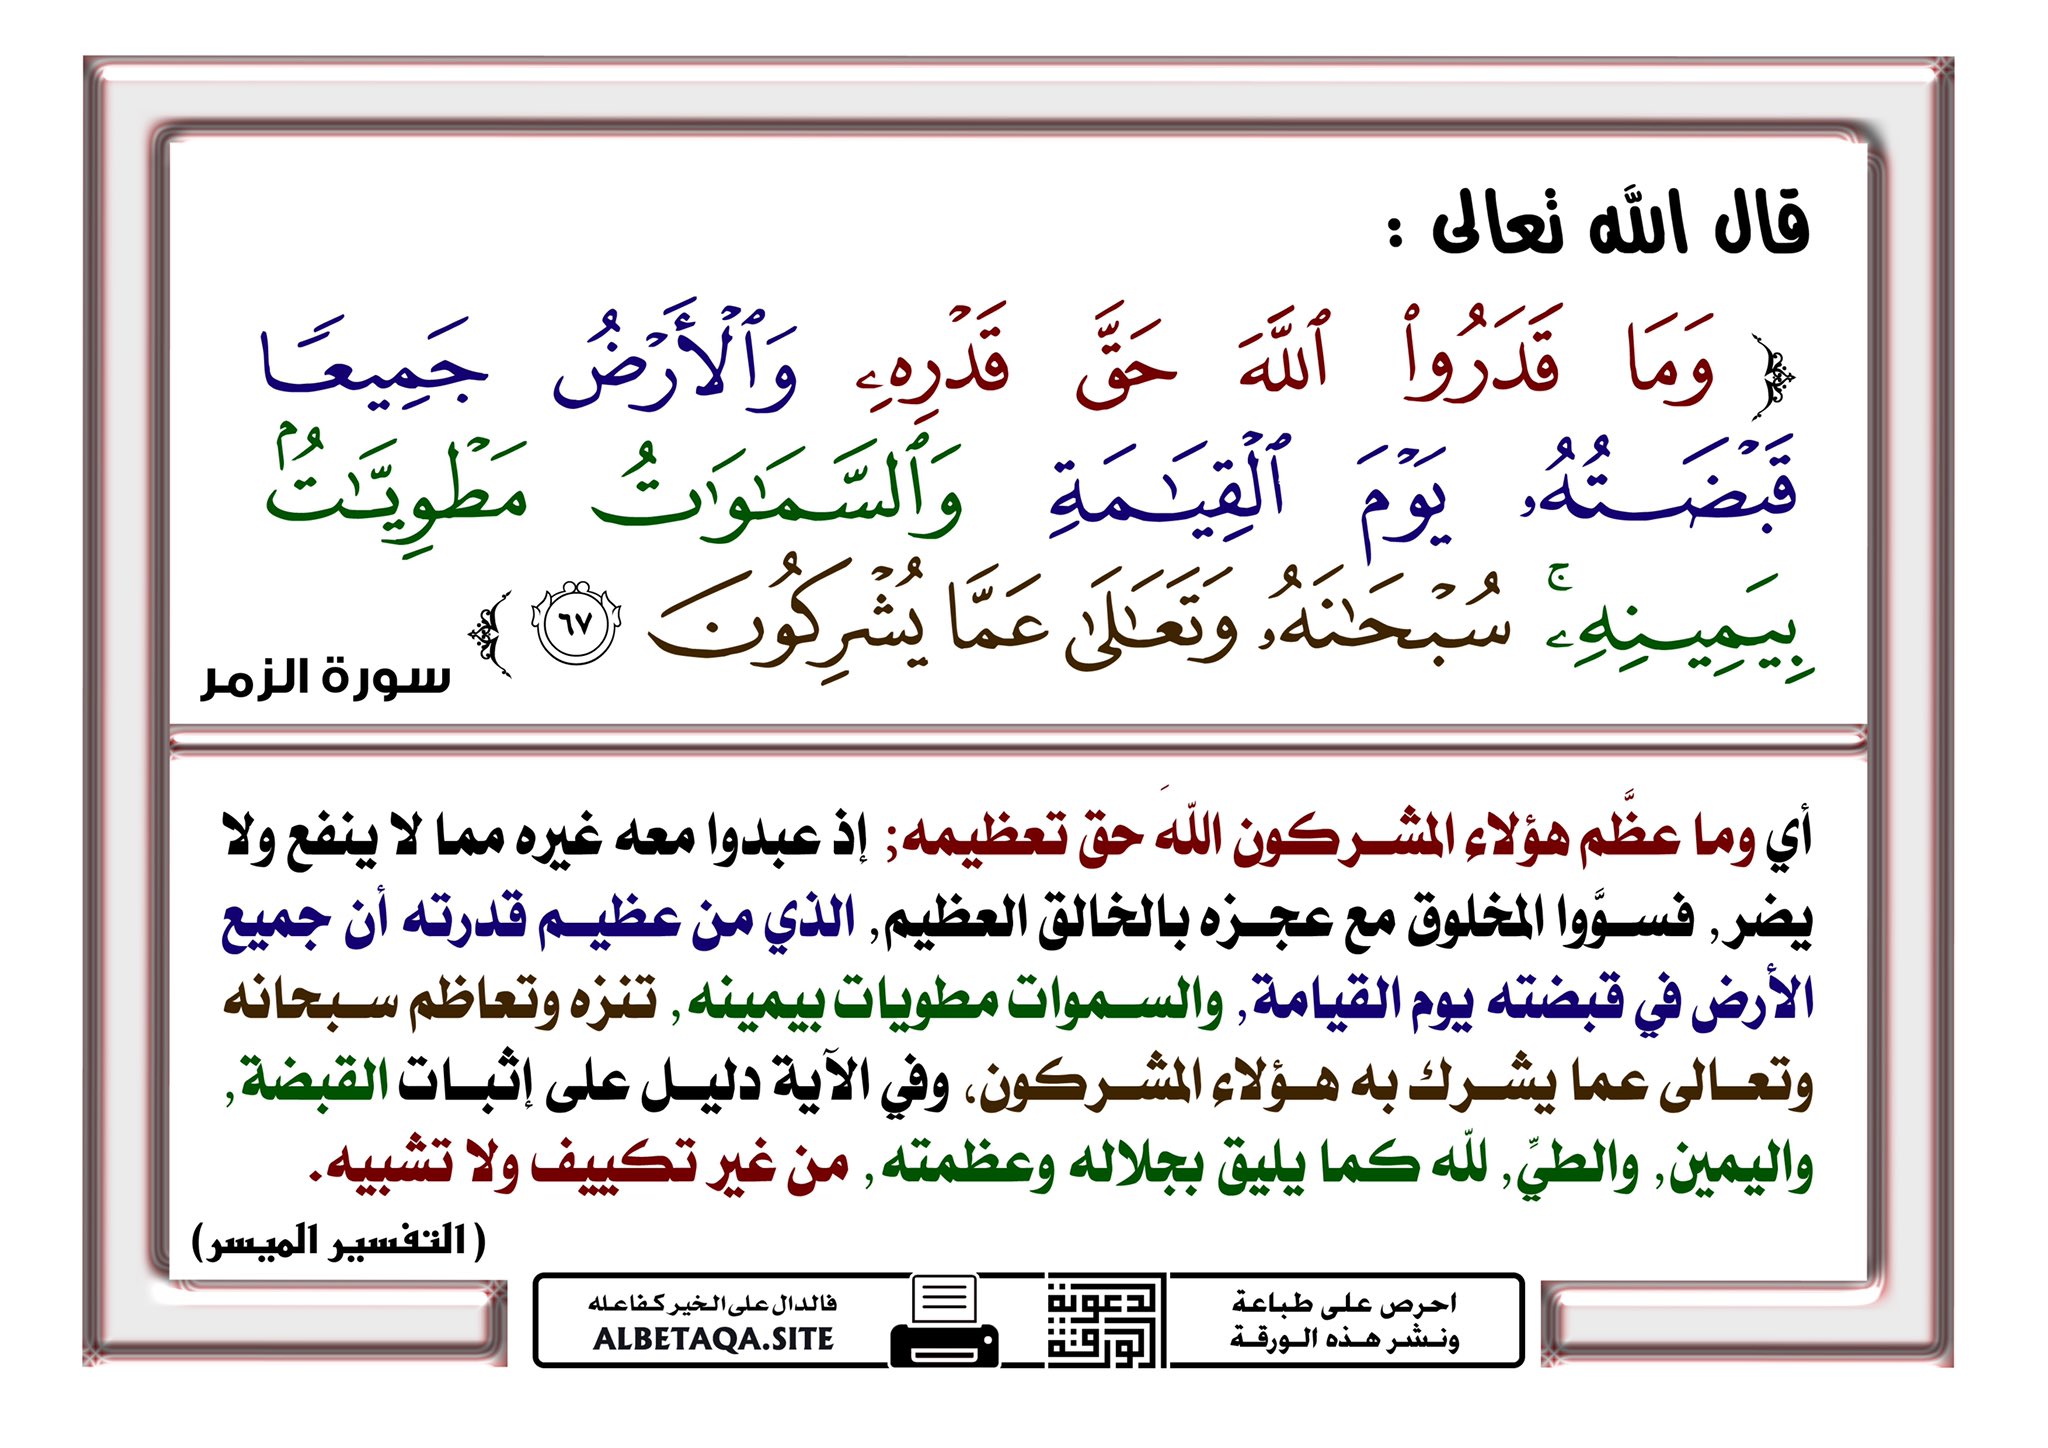 قال الله تعالى :
﴿ وَمَا قَدَرُوا۟ ٱللَّهَ حَقَّ قَدْرِهِۦ وَٱلْأَرْضُ جَمِيعًا
قَبْضَتُهُۥ يَوْمَ ٱلْقِيَـٰمَةِ وَٱلسَّمَـٰوَٰتُ مَطْوِيَّـٰتُۢ
بِيَمِينِهِۦ ۚ سُبْحَـٰنَهُۥ وَتَعَـٰلَىٰ عَمَّا يُشْرِكُونَ ٦٧ ﴾
سورة الزمر
أي وما عظَّم هؤلاء المشركون اللهَ حق تعظيمه; إذ عبدوا معه غيره مما لا ينفع ولا
يضر, فسوَّوا المخلوق مع عجزه بالخالق العظيم, الذي من عظيم قدرته أن جميع
الأرض في قبضته يوم القيامة, والسموات مطويات بيمينه, تنزه وتعاظم سبحانه
وتعالى عما يشرك به هؤلاء المشركون، وفي الآية دليل على إثبات القبضة,
واليمين, والطيِّ, لله كما يليق بجلاله وعظمته, من غير تكييف ولا تشبيه.
(التفسير الميسر)
احرص على طباعة
ونشر هذه الورقة
الورقة
الدعوية
فالدال على الخير كفاعله
ALBETAQA.SITE